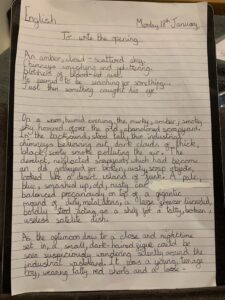 English Monday 18th January
To write the opening...
An amber, cloud-scattered sky.
Chimneys
blankets of blood-red rust.
He seemed to be searching for something...
Just then something caught his eye.
On a warm, humid evening, the murky, amber, smoky
sky hovered over the old, abandoned scrapyard.
In the background, stood tall, thin industrial
chimneys bellowing out dark clouds of thick
black, sooty smoke polluting the air. The
derelict, neglected scrapyard which had become
an old graveyard for broken, rusty, scrap objects,
looked like a desert island of junk. A pale,
blue, smashed up, old, rusty car
balanced precariously on top of a gigantic
mound of dirty, metal items, a large
stood acting as a shelf for a tatty, broken,
useless satellite dish.
As the afternoon drew to a close and nighttime
set in, a small, dark-haired figure could be
seen suspiciously wandering silently around the
industrial wasteland. It was a young, teenage
boy, wearing tatty, red shorts and a